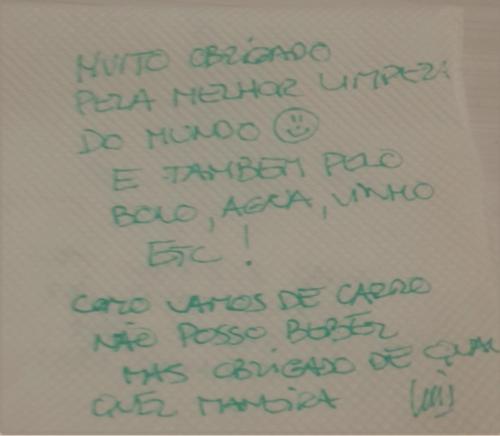 MUITO OBRIGADO
PELA MELHOR LIMPEZA
DO MUNDO
E TAMBEM PELO
BOLO, AGUA, VINHO
ETC!
COMO VAMOS DE CARRO
NÃO POSSO BEBER
MAS OBRIGADO DE QUAL
QUER MANEIRA Luis